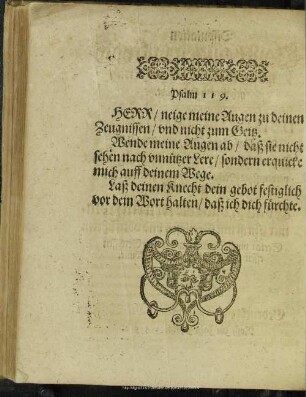 Psalm 119.
HERR/ neige meine Augen zu deinen
Zeugnissen/ vnd nicht zum Geitz.
Wende meine Augen ab/ daß sie nicht
sehen nach vnnützer Lere/ sondern erquicke
mich auff deinem Wege.
Laß deinen Knecht dein gebot festiglich
vor dem Wort halten/ daß ich dich fürchte.